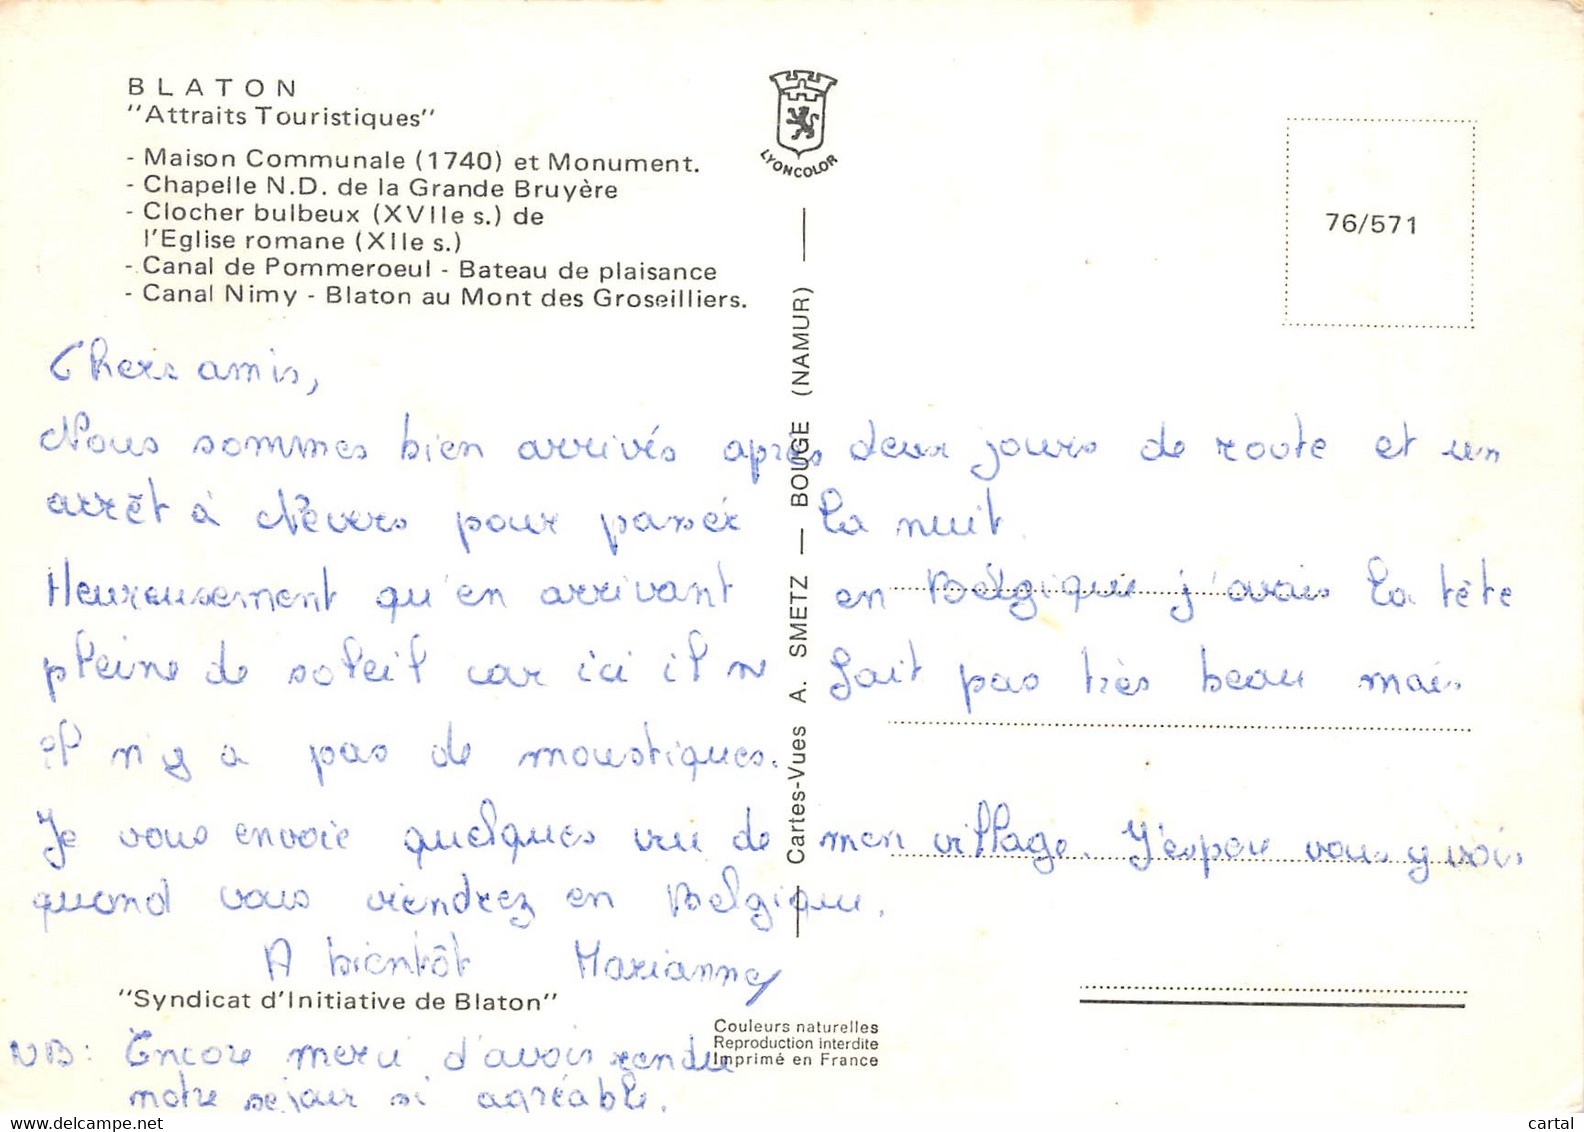 BLATON
"Attraits Touristiques"
- Maison Communale (1740) et Monument.
- Chapelle N.D. de la Grande Bruyère
- Clocher bulbeux (XVIIe s.) de
l'Eglise romane (XIIe s.)
- Canal de Pommeroeul - Bateau de plaisance
- Canal Nimy - Blaton au Mont des Groseilliers.
LYONCOLOR
76/571
Cartes-Vues A. SMETZ — BOUGE (NAMUR)
Chers amis,
Nous sommes bien arrivés après deux jours de route et un
arrêt à Nevers pour passer la nuit.
Heureusement qu'en arrivant en Belgique j'avais la tête
pleine de soleil car ici il ne fait pas très beau mais
il n'y a pas de moustiques.
Je vous envoie quelques vue de mon village. J'espere vous y voir
quand vous viendrez en Belgique.
A bientôt Marianne
"Syndicat d'Initiative de Blaton"
Couleurs naturelles
Reproduction interdite
Imprimé en France
NB: Encore merci d'avoir rendu
notre sejour si agréable.
www.delcampe.net
cartal